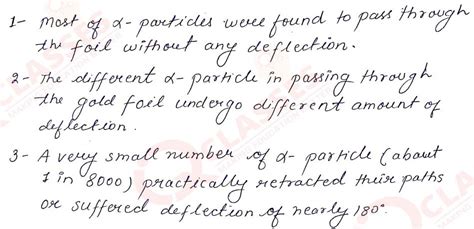 1- Most of α-particles were found to pass through
the foil without any deflection.
2- The different α-particle in passing through
the gold foil undergo different amount of
deflection.
3- A very small number of α-particle (about
1 in 8000) practically retracted their paths
or suffered deflection of nearly 180°.
CLASSES